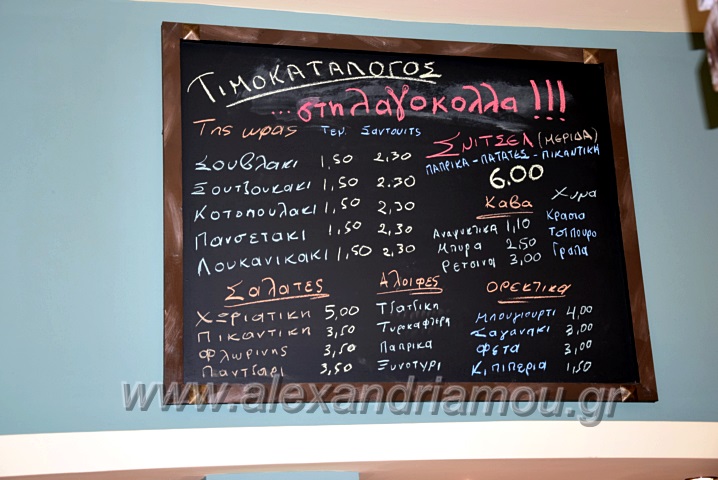 Τιμοκαταλογος
...στη λαγοκολλα!!!
Της ωρας Τεμ. Σαντουιτς
Σουβλακι 1,50 2,30
Σουτζουκακι 1,50 2.30
Κοτοπουλακι 1,50 2,30
Πανσετακι 1,50 2,30
Λουκανικακι 1,50 2,30
Σνιτσελ (μεριδα)
Παπρικα - Πατατες - Πικαντικη
6.00
Καβα
Αναψυκτικα 1,10
Μπυρα 2,50
Ρετσινα 3,00
Χυμα
Κρασια
Τσιπουρο
Γραπα
Σαλατες
Χεριατικη 5,00
Πικαντικη 3,50
Φλωρινης 3,50
Παντζαρι 3,50
Αλοιφες
Τζατζικη
Τυροκαφτερη
Παπρικα
Ξυνοτυρι
Ορεκτικα
Μπουγιουρτι 4,00
Σαγανακι 3,00
Φετα 3,00
Κ. Πιπερια 1,50
www.alexandriamou.gr